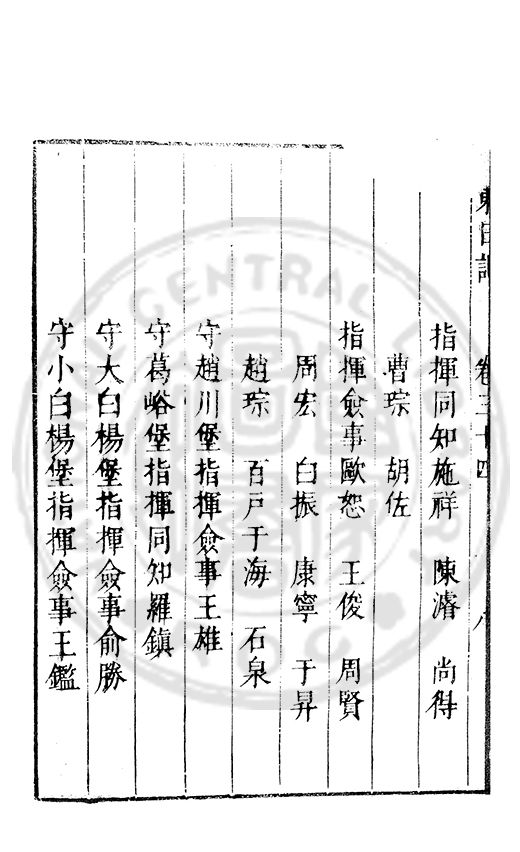 卷三十四
八
指揮同知施祥　陳濬　尚得
曹琮　胡佐
指揮僉事歐恕　王俊　周賢
周宏　白振　康寧　于昇
趙琮　百戶于海　石泉
守趙川堡指揮僉事王雄
守葛峪堡指揮同知羅鎮
守大白楊堡指揮僉事俞勝
守小白楊堡指揮僉事王鑑
CENTRAL